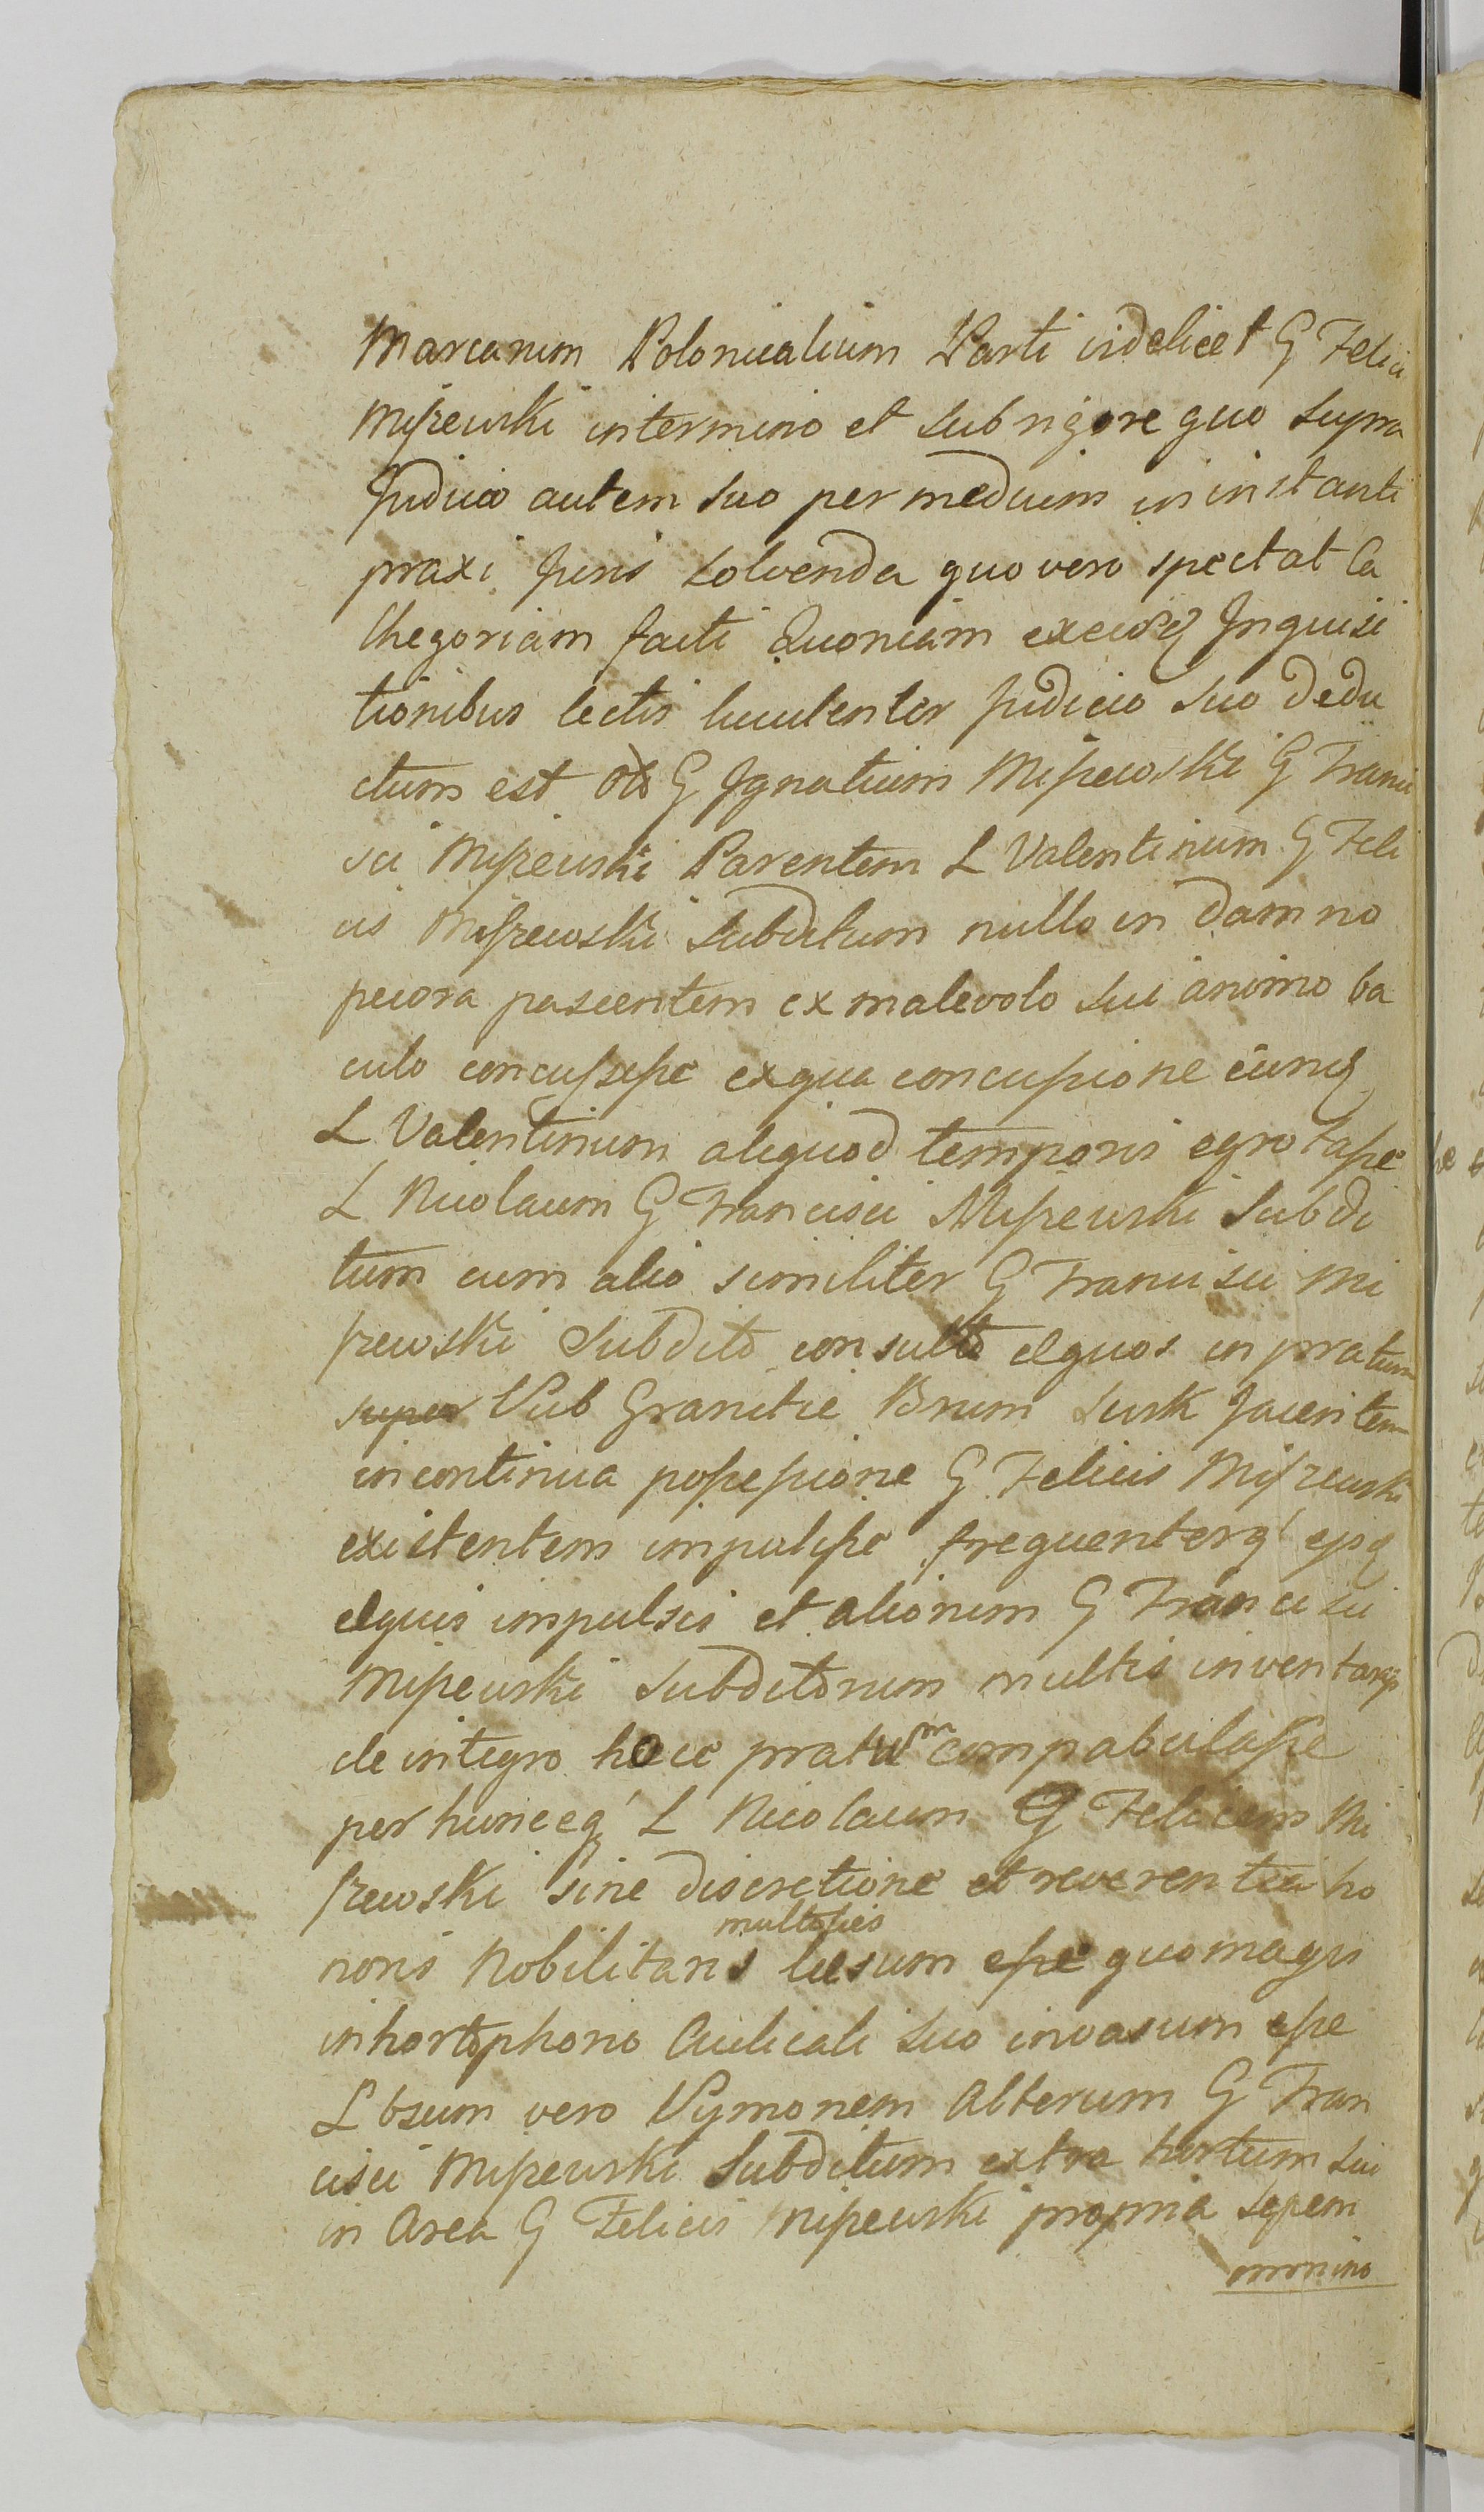 Marcarum Polonicalium Parti videlicet G Felici
Miszewski in termino et sub rigore quo supra
Judicio autem suo per medium in instanti
praxi Juris solvenda quo vero spectat Ca
thegoriam facti Quoniam ex eisdq Inquisi
tionibus lectis luculenter Judicio suo dedu
ctum est G Ignatium Miszewski G Franci
sci Miszewski Parentem L Valentinum G Feli
cis Miszewski Subditum nullo in damno
pecora pascentem ex malevolo sui animo ba
culo concussisse ex qua concussione eunq
L Valentinum aliquod temporis egrotasse
L Nicolaum G Francisci Miszewski Subdi
tum cum alio similiter G Francisci Mi
szewski Subdito consulto equos in pratum
super Sub Granitie Brum Susk Jacentem
in continua possessione G Felicis Miszewski
existentem impulisse frequenterq
equis impulsis et aliorum G Francisci
Miszewski Subditorum multis
de integro hocce pratum compabulasse
per hunceq L Nicolaum G Felicem Mi
szewski sine discretione et reverentia ho
noris Nobilitaris multoties læsum esse quo magis
in hortophorio Aulicali suo invasum esse
Lbsum vero Symonem Alterum G Fran
cisci Miszewski Subditum extra hortum sui
in Area G Felicis Miszewski propria sepem
omnino